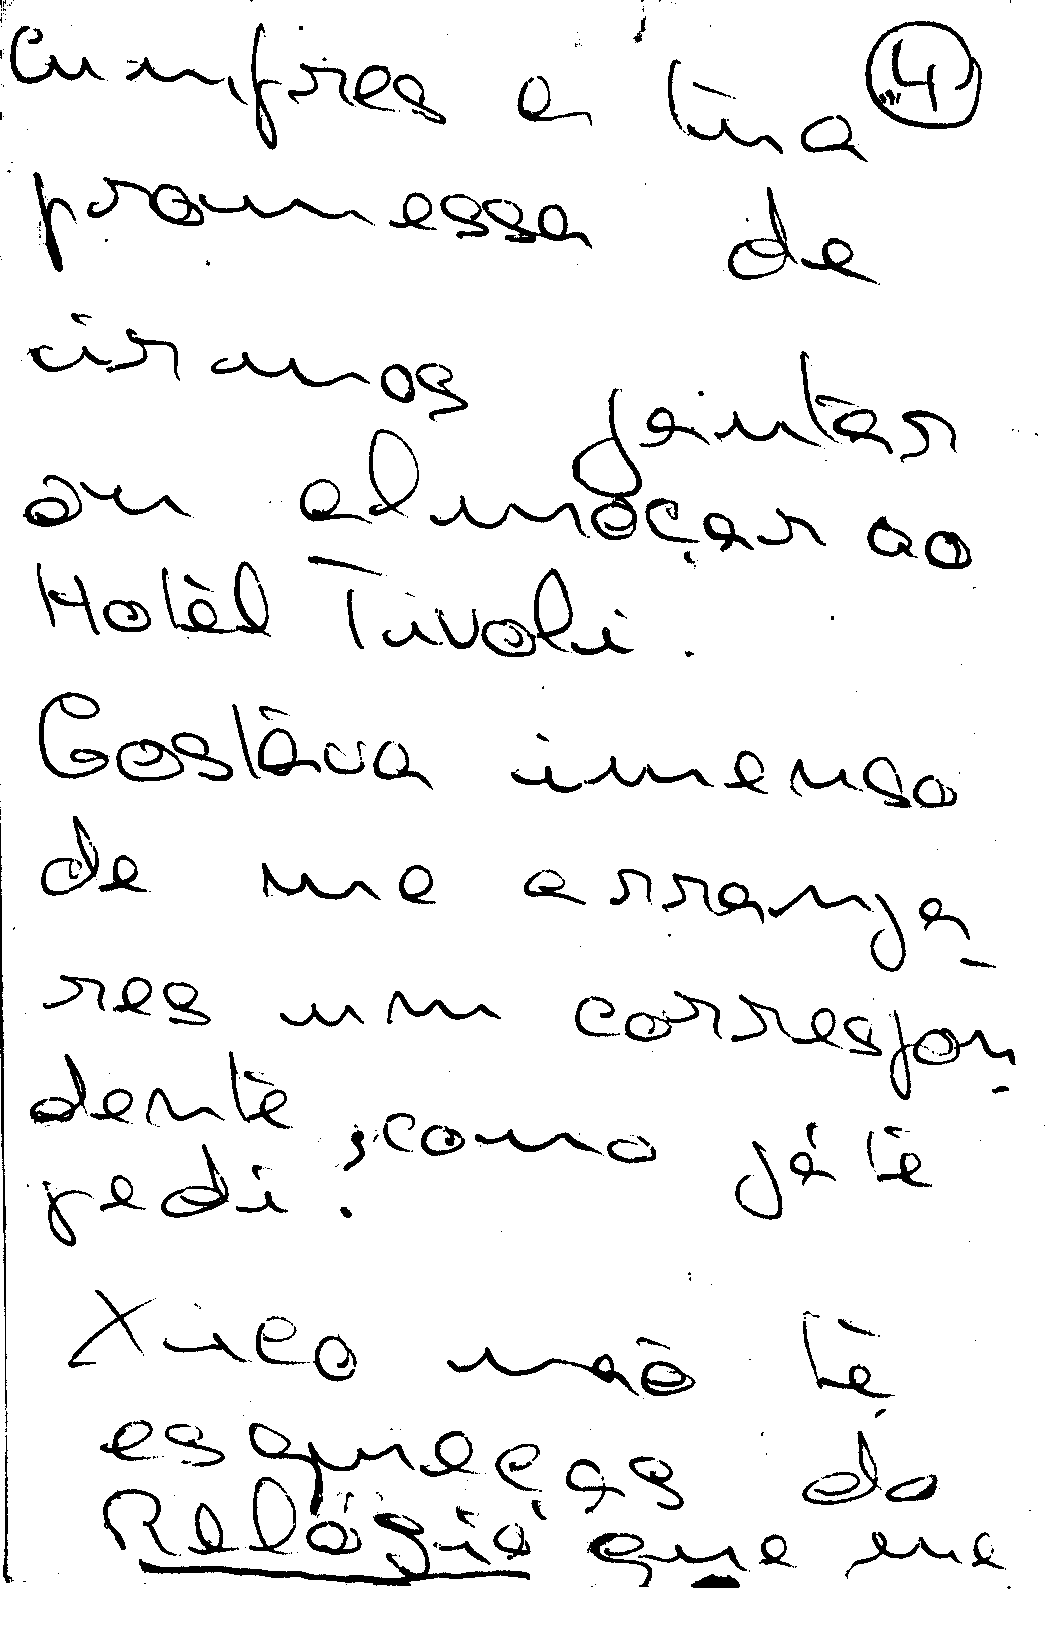 Cumpres a tua 4
promessa de
irmos jantar
ou almoçar ao
Hotel Tivoli.
Gostava imenso
de me arranja-
res um correspon-
dente, como já te
pedi.
Xico não te
esqueças do
Relógio que me